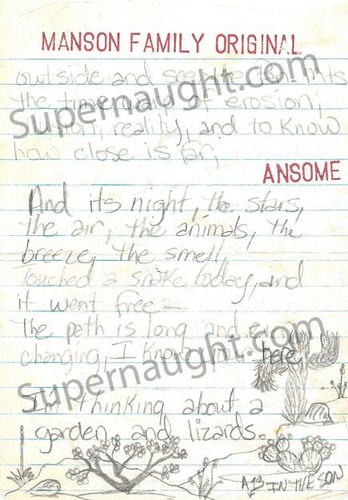 MANSON FAMILY ORIGINAL
outside and see the
the time of erosion,
reality, and to know
how close is far,
Supernaught.com
ANSOME
And its night, the stars,
the air, the animals, the
breeze, the smell,
Touched a snake today, and
it went free —
Supernaught.com
The path is long and
changing, I know here,
Supernaught.com
I'm thinking about a
garden and lizards.
IN THE SON